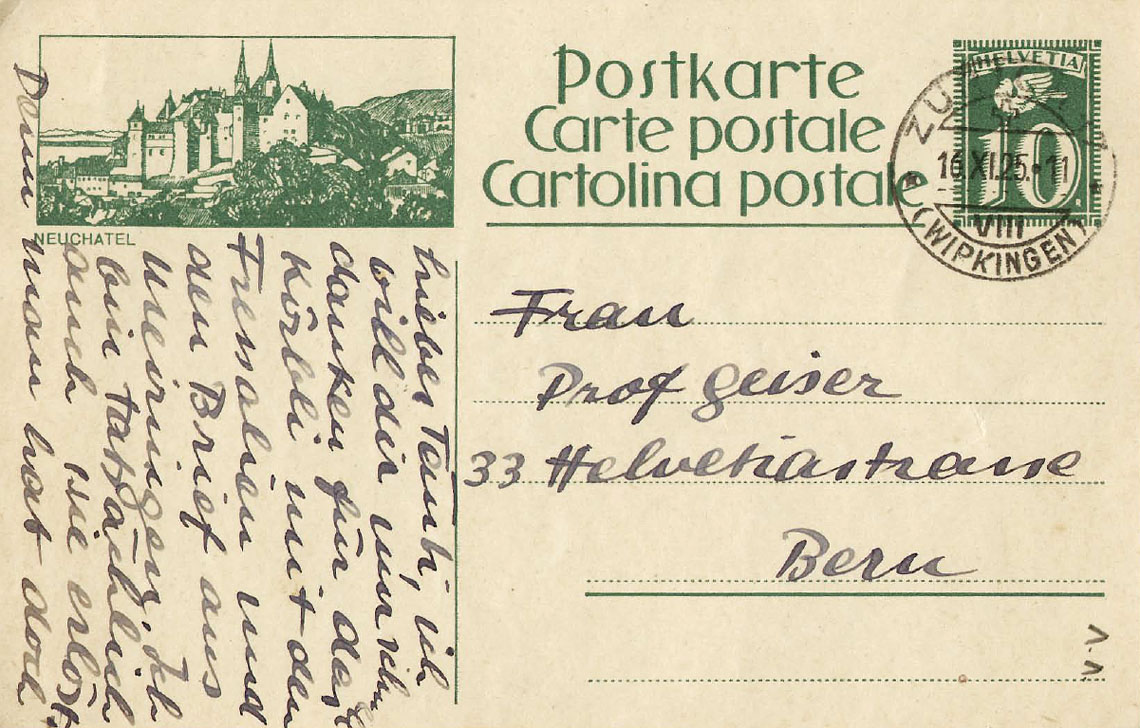 Postkarte
Carte postale
Cartolina postale
HELVETIA
10
16.XI.25.-11
VIII
(WIPKINGEN)
NEUCHATEL
Frau
Prof Geiser
33 Helvetiastrasse
Bern
Liebes Tanti, ich
will dir
danken für das
Körbli mit den
Fressalien und
den Brief aus
Meiringen. Ich
bin tatsächlich
auch wie erlöst.
Denn man hat doch